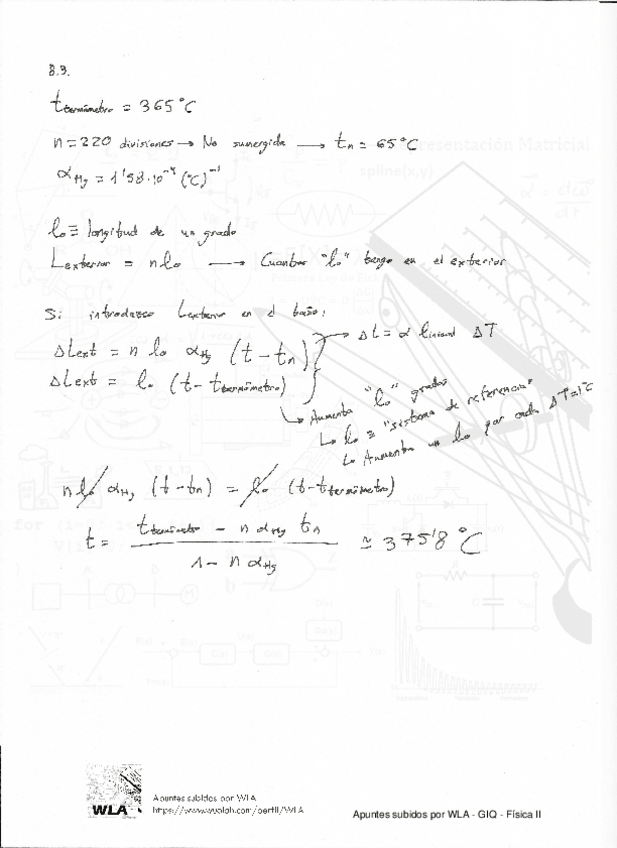 8.3.
t termómetro = 365 °C
n = 220 divisiones → No sumergida → tn = 65 °C
αHg = 1'58·10⁻⁴ (°C)⁻¹
lo ≡ longitud de un grado
Lexterior = n lo → Cuantos "lo" tengo en el exterior
Si introduzco Lexterior en el baño:
ΔLext = n lo αHg (t - tn) → ΔL = α linicial ΔT
ΔLext = lo (t - t termómetro)
↳ Aumenta "lo" grados
↳ lo ≡ "sistema de referencia"
↳ Aumenta un lo por cada ΔT=1°C
n lo αHg (t - tn) = lo (t - t termómetro)
t = (t termómetro - n αHg tn) / (1 - n αHg) ≃ 375'8 °C
presentación Matricial
spline(x,y)
WLA
Apuntes subidos por WLA
https://www.wuolah.com/perfil/WLA
Apuntes subidos por WLA - GIQ - Física II